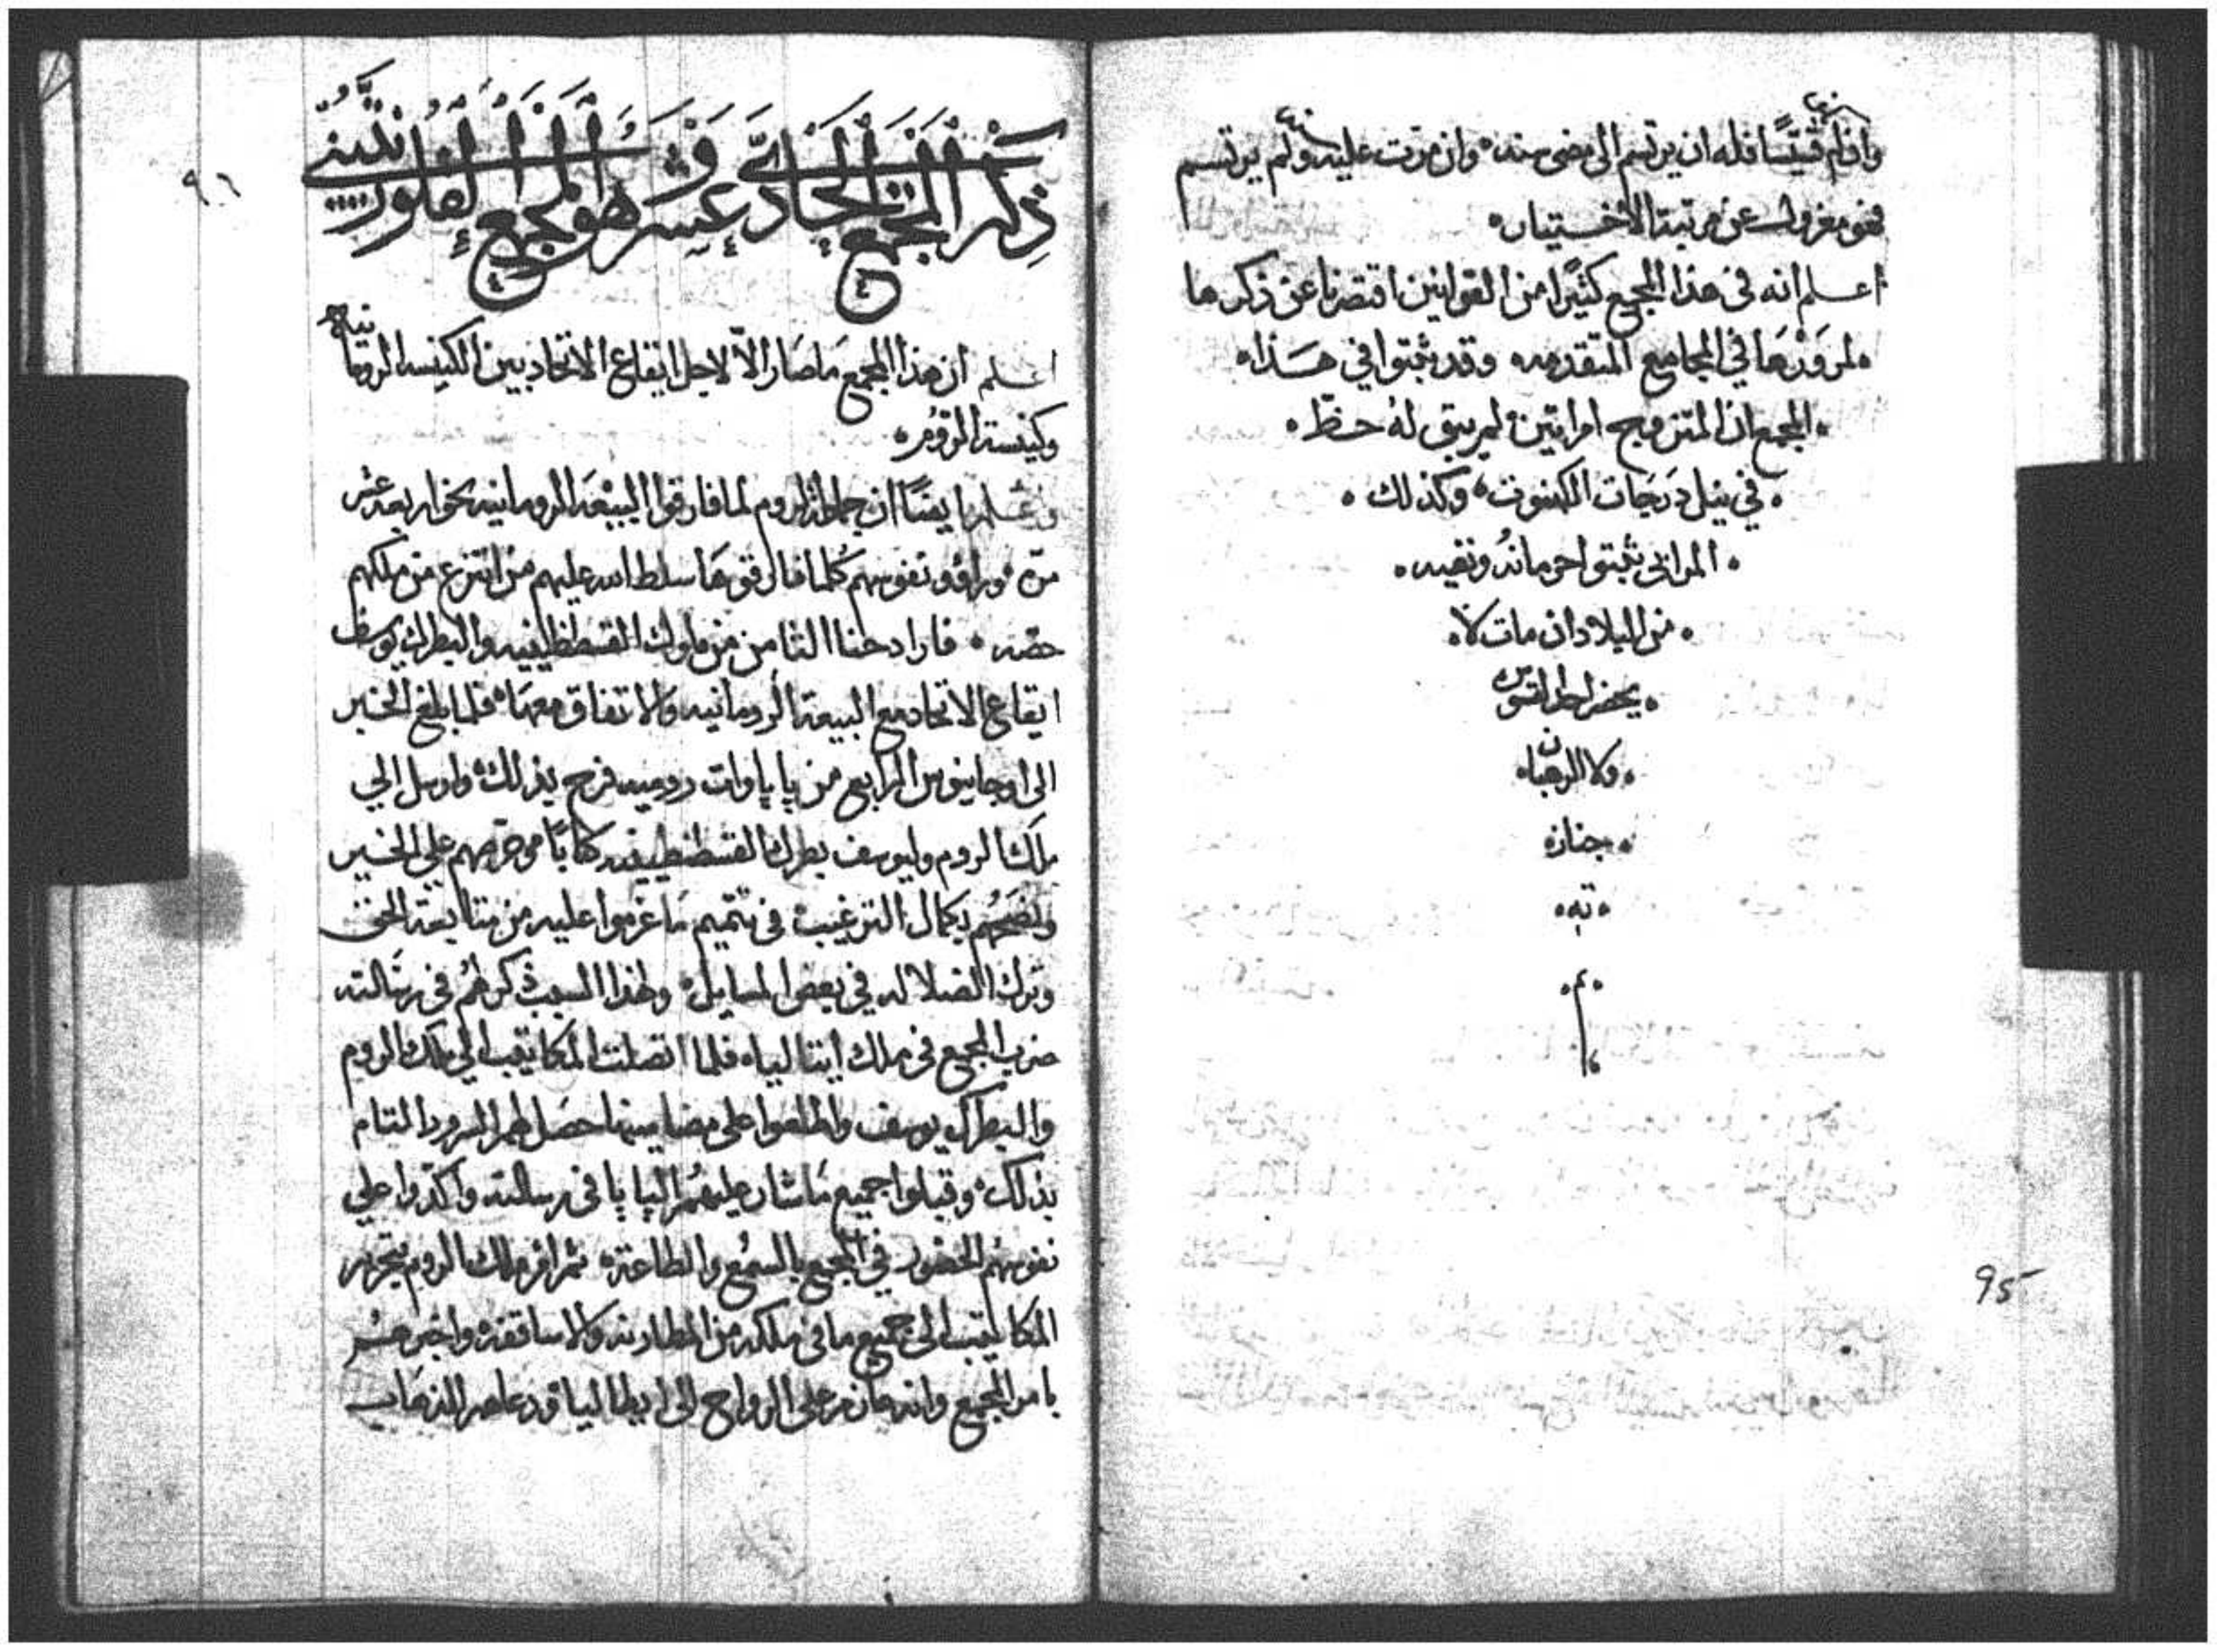 وان لم قسيسًا فله ان يرتسم الى مضى سنه وان مرت عليه ولم يرتسم
فهو معزول عن مرتبة الاختيار
اعلم انه فى هذا المجمع كثيرًا من القوانين اقتصرنا عن ذكرها
لمرَوْرَها في المجامع المتقدمه وقد ثبتوا في هذا
المجمع ان المتزوج امراتين لم يبق لهُ حظّ
في نيل دَرَجَات الكهنوت وكذلك
المرابى ثبتوا حرمانهُ ونفيه
من البلاد ان مات لا
يحضر احد القسوس
ولا الرهبان
جناز
ته
م
95
٩٦
ذكر المجمع الحادي عشر وهو المجمع الفلورنتيني
اعلم ان هذا المجمع مَا صَار الاّ لاجل ايقاع الاتحاد بين الكنيسه الرومانيه
وكنيسة الرّومُ
ونعلم ايضًا ان جماعة الروم لما فارقوا البيْعَه الرومانيه نحو اربعة عشر
مرّه وراوا نفوسهم كُلما فارقوهَا سلط الله عليهم من انتزع من ملكهم
حصّه فاراد حنا الثامن من ملوك القسطنطينيه والبطرك يوسف
ايقاع الاتحاد مع البيعة الرومانيه والاتفاق معهَا فلما بلغ الخبر
الى اوجانيوس الرابع من پاپاوات روميه فرح بذلك وارسل الي
ملك الروم وليوسف بطرك القسطنطينيه كتابًا موحرّضهم علي الخير
ونصَحَهُم بكمال الترغيب فى تتميم مَا عزموا عليه من متابعة الحق
وترك الضلاله في بعض المسايل ولهذا السبب ذكر لهُم فى رسَالته
ضرب المجمع فى ملك ايتاليا فلما اتصلت المكاتيب الي ملك الروم
والبطرك يوسف واطلعوا على مضامينها حصَل لهم السرور التام
بذلك وقبلوا جميع مَا شار عليهُم الپاپا فى رسالته واكدّوا علي
نفوسهُم الحضور في المجمع بالسمُع والطاعته ثم امر ملك الروم بتحرير
المكاتيب الى جميع ما فى ملكه من المطارنه والاساقفه واخبرهـُم
بامر المجمع وانه عازم على الرواح الى ايطاليا ودعاهم للذهَاب